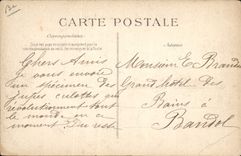 CARTE POSTALE
Correspondance
Adresse
Chers Amis
Je vous envoie
un spécimen des
jupes culottes qui
révolutionnent tout
le monde en ce
moment. Du reste
Monsieur E Brandin
Grand hôtel des
Bains à
Bandol